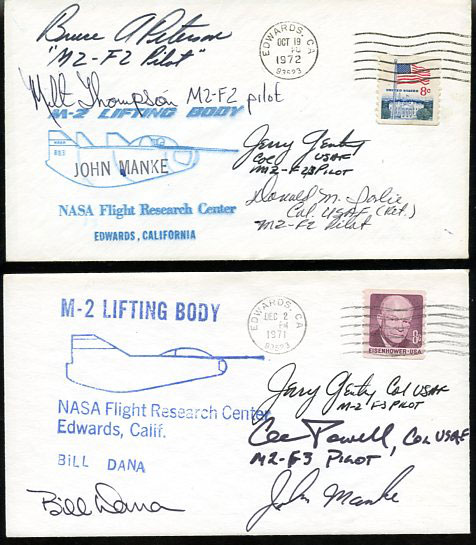 Bruce A Peterson
"M2-F2 Pilot"
Milt Thompson M2-F2 pilot
M-2 LIFTING BODY
NASA
803
JOHN MANKE
NASA Flight Research Center
EDWARDS, CALIFORNIA
EDWARDS, CA
OCT 19
1972
93523
UNITED STATES 8c
Jerry Gentry
Col USAF
M2-F2/3 PILOT
Donald M. Sorlie
Col. USAF (Ret.)
M2-F2 Pilot
M-2 LIFTING BODY
NASA Flight Research Center
Edwards, Calif.
BILL DANA
Bill Dana
EDWARDS, CA
DEC 2
PM
1971
93523
8c
EISENHOWER·USA
Jerry Gentry Col USAF
M-2 F3 PILOT
Cec Powell, Col USAF
M2-F3 PILOT,
John Manke